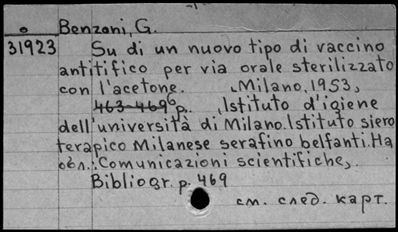 Benzoni, G.
31923 Su di un nuovo tipo di vaccino
antitifico per via orale sterilizzato
con l'acetone. Milano, 1953,
463-469 6 p. Istituto d'igiene
dell'università di Milano. Istituto siero
terapico Milanese serafino belfanti. На
обл.: Comunicazioni scientifiche,.
Bibliogr. p. 469
см. след. карт.